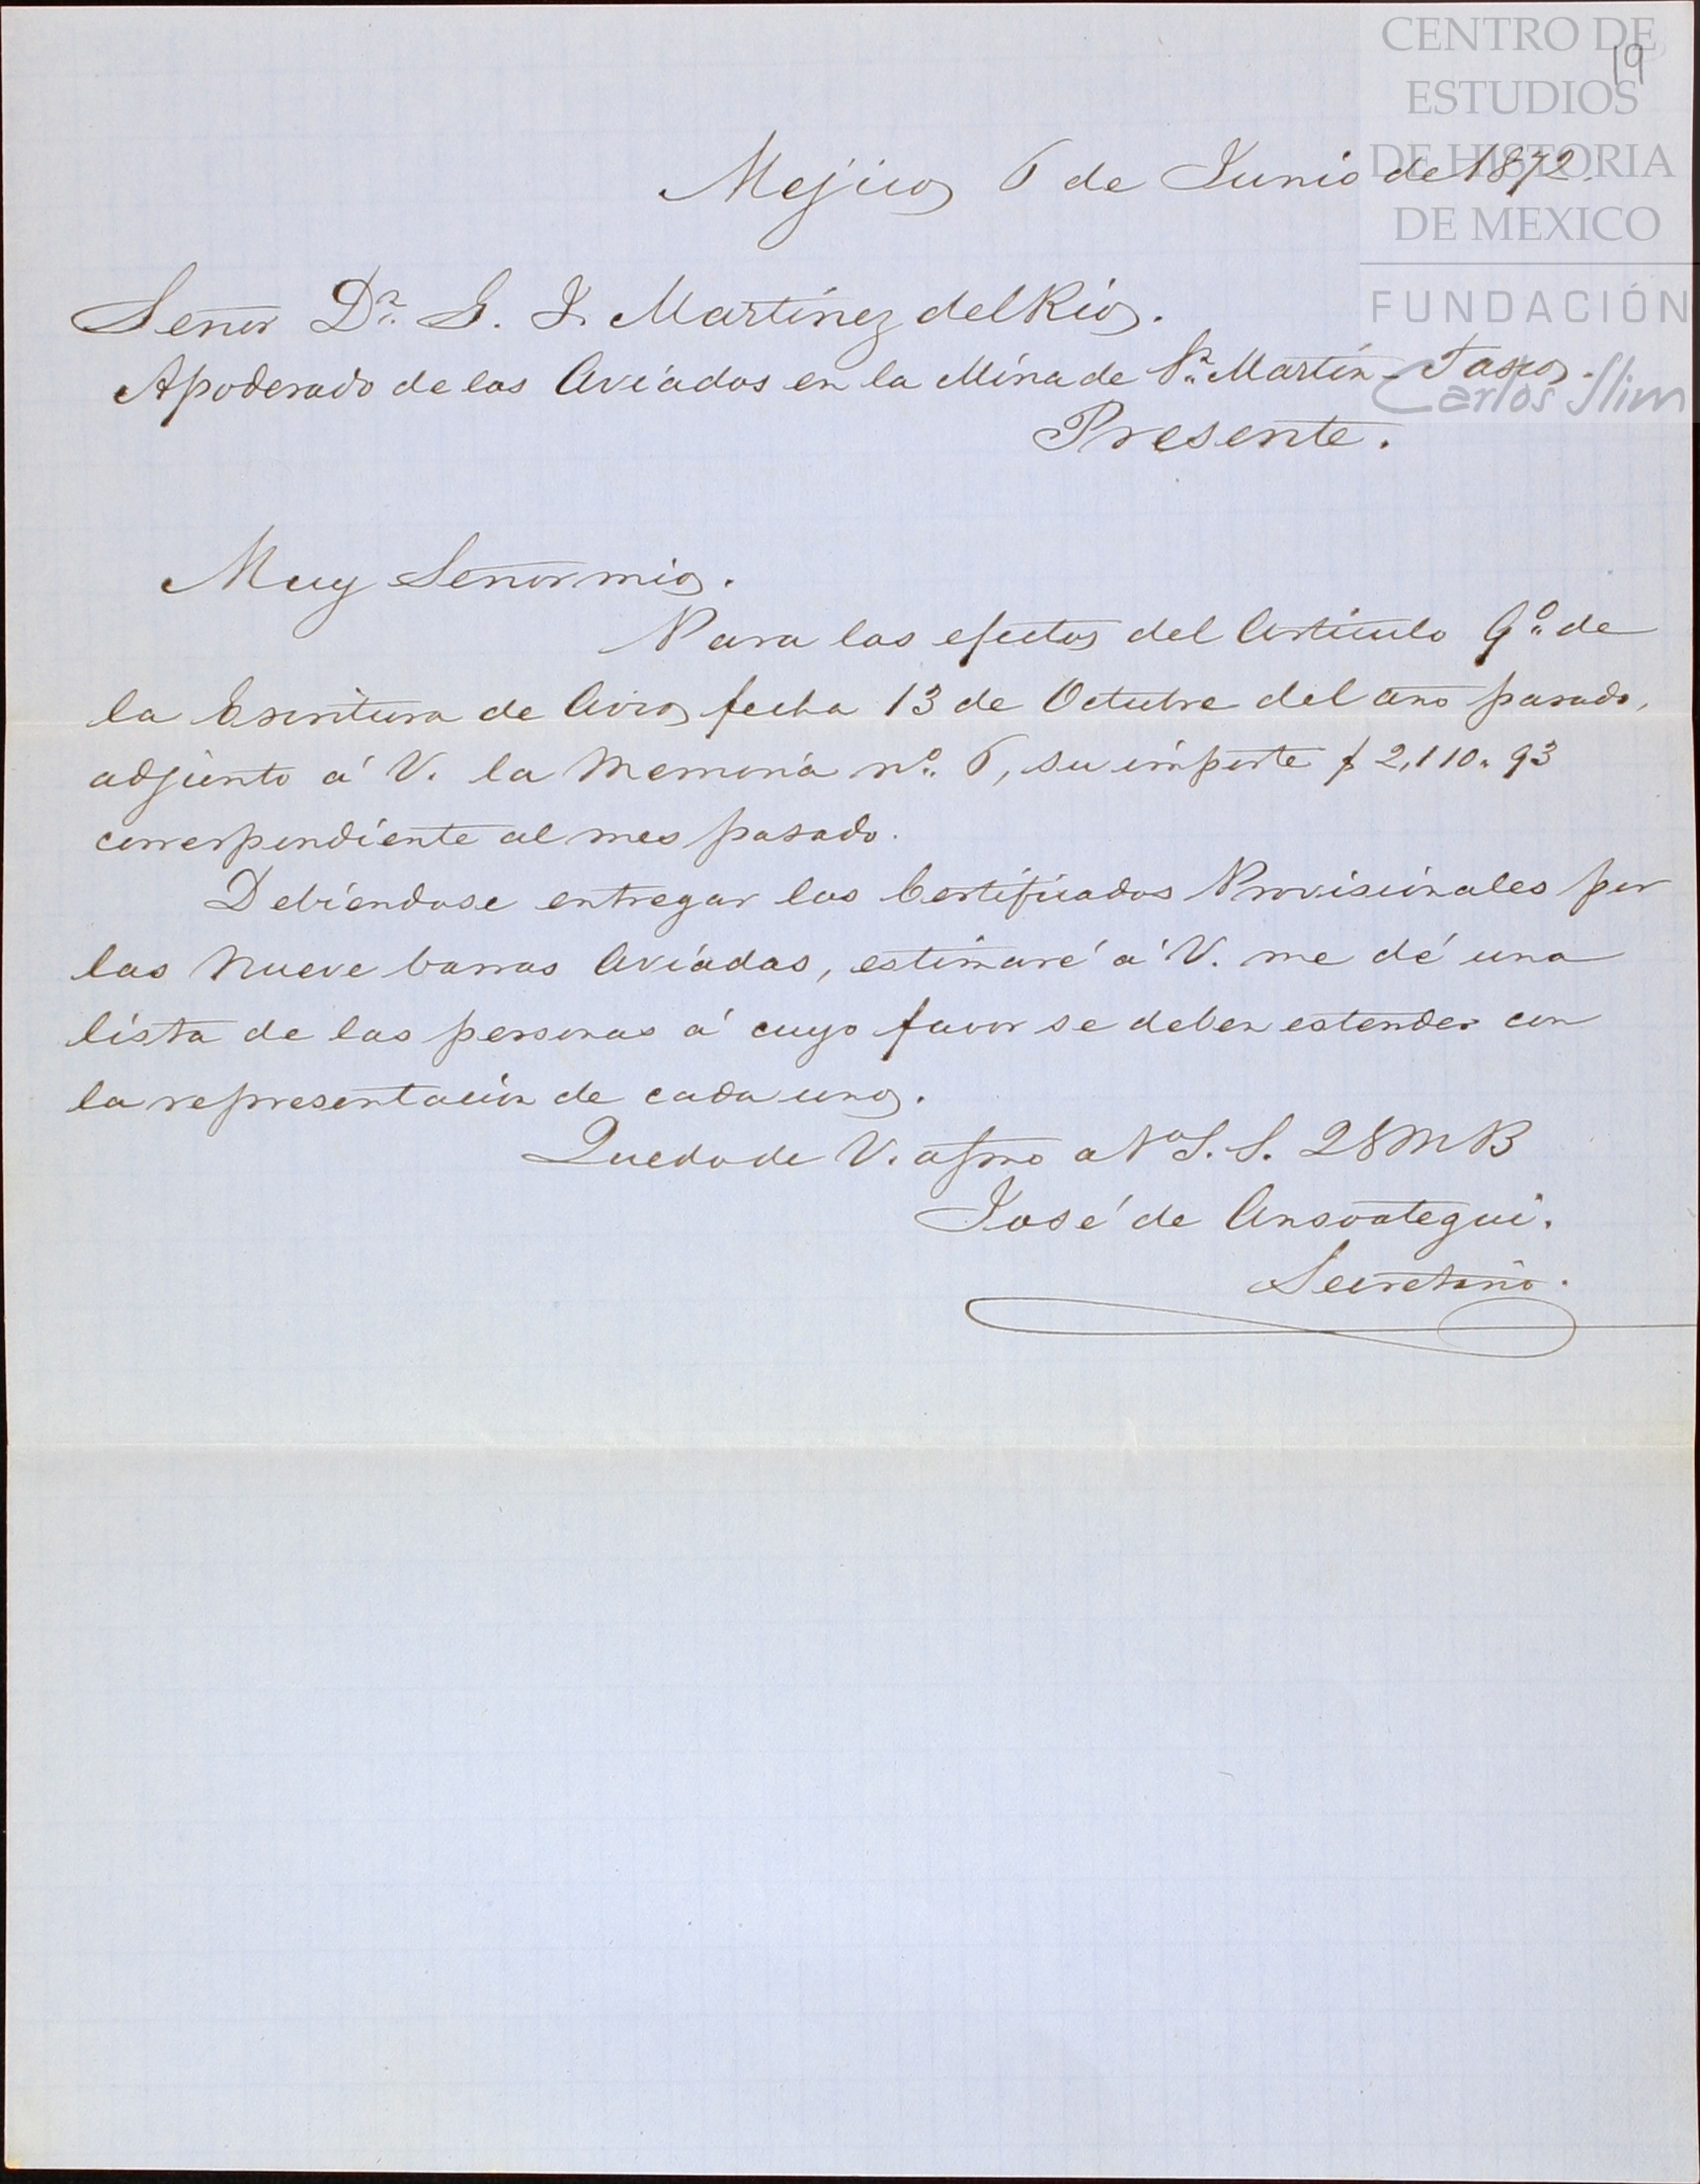 CENTRO DE
ESTUDIOS
DE HISTORIA
DE MEXICO
FUNDACIÓN
Carlos Slim
19
Mejico, 6 de Junio de 1872.
Señor Dn. G. J. Martinez del Rio,.
Apoderado de los Aviados en la Mina de Sn. Martin - Tasco.
Presente.
Muy Señor mio,.
Para los efectos del Articulo 9º de
la Escritura de Avio, fecha 13 de Octubre del año pasado,
adjunto á V. la Memoria nº. 6, su importe $ 2,110.. 93
correspondiente al mes pasado.
Debiendose entregar los Certificados Provisionales por
las Nueve barras Aviadas, estimaré á V. me dé una
lista de las personas á cuyo favor se deben estender con
la representacion de cada uno,.
Quedo de V. afmo a Nº S. S. 2SMB
José de Ansoategui.
Secretario.